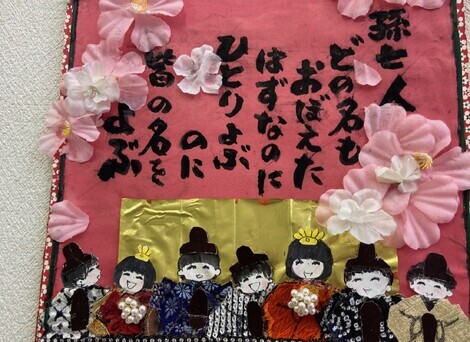 孫七人
どの名も
おぼえた
はずなのに
ひとりよぶ
のに
皆の名を
よぶ